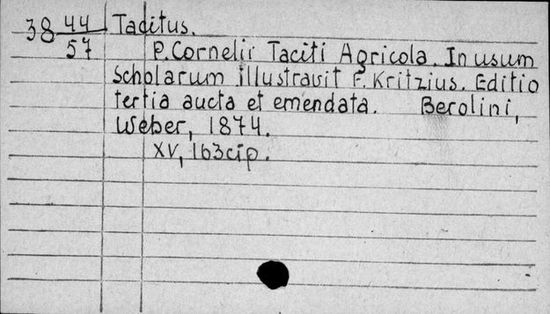 38 44/57 Tacitus.
P. Cornelii Taciti Agricola. In usum
scholarum illustravit F. Kritzius. Editio
tertia aucta et emendata. Berolini,
Weber, 1874.
XV, 163 cip.